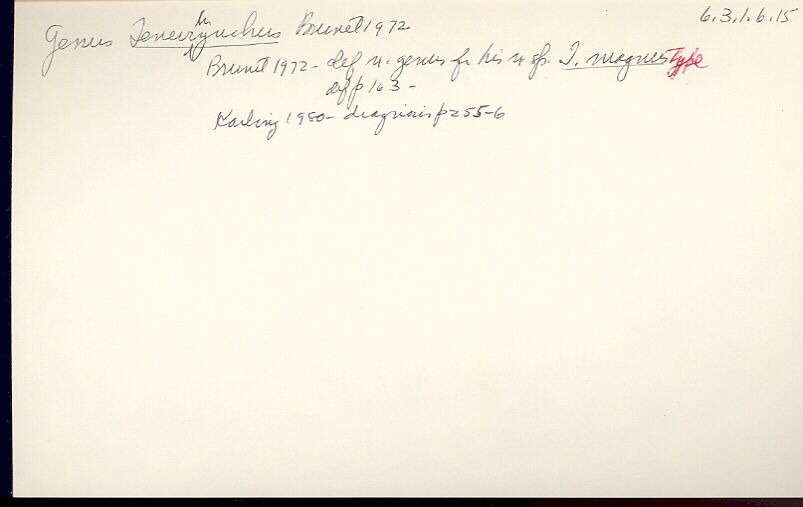 6.3.1.6.15
Genus Tenerrhynchus Brunet 1972
Brunet 1972 - def n. genus for his n sp. T. magnus Type
def p 163 -
Karling 1980 - diagnosis p 255-6